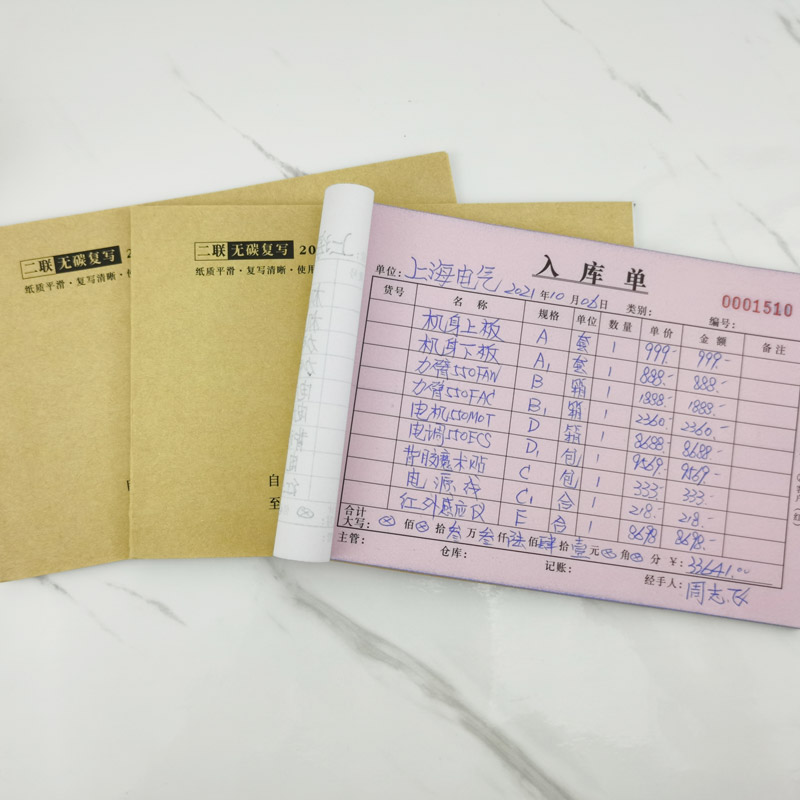 二联 无碳复写 2
纸质平滑·复写清晰·使
二联 无碳复写 20
纸质平滑·复写清晰·使用
自
至
入库单
0001510
单位: 上海电气 2021年10月06日 类别: 编号:
货号 名称 规格 单位 数量 单价 金额 备注
机身上板 A 套 1 999.- 999.-
机身下板 A1 套 1 888.- 888.-
力臂550FAN B 箱 1 1888.- 1888.-
力臂550FAC B1 箱 1 2360.- 2360.-
电机550MOT D 箱 1 8688.- 8688.-
电调550ECS D1 包 1 9569.- 9569.-
背胶魔术贴 C 包 1 333.- 333.-
电源线 C1 台 1 218.- 218.-
红外感应仪 E 台 1 8698.- 8698.-
合计
大写: ⊗佰⊗拾叁万叁仟陆佰肆拾壹元⊗角⊗分 ¥: 33641.00
主管: 仓库: 记账: 经手人: 周志飞